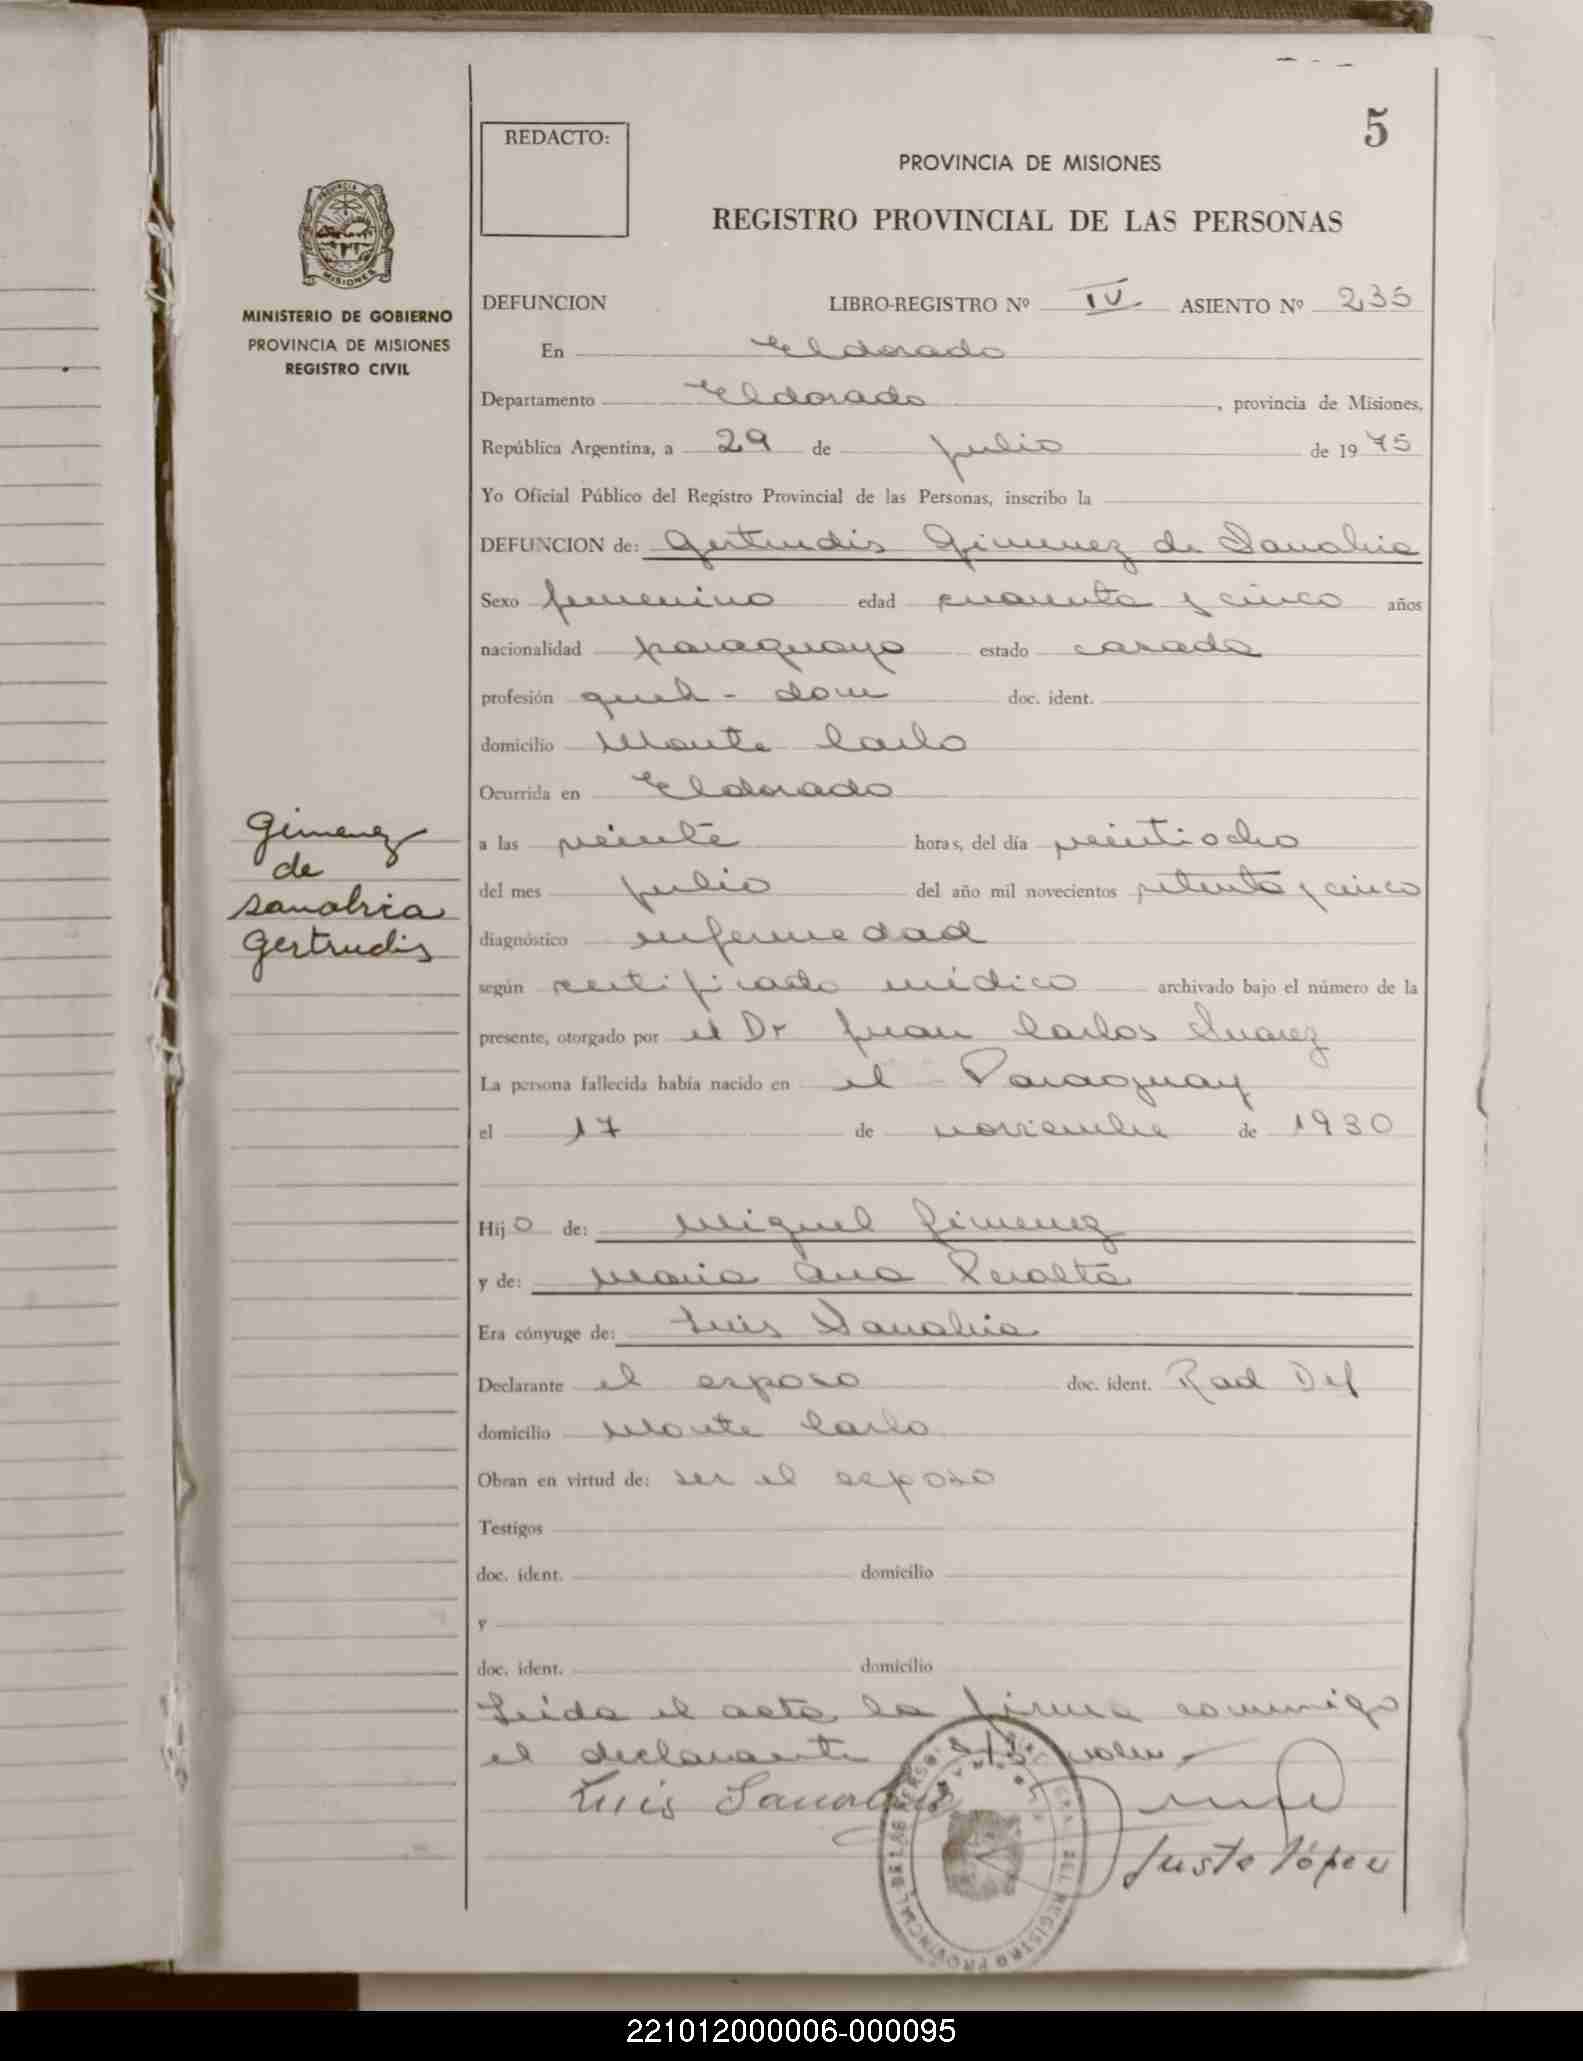 5
REDACTO:
PROVINCIA DE MISIONES
REGISTRO PROVINCIAL DE LAS PERSONAS
MINISTERIO DE GOBIERNO
PROVINCIA DE MISIONES
REGISTRO CIVIL
DEFUNCION LIBRO-REGISTRO Nº IV ASIENTO Nº 235
En Eldorado
Departamento Eldorado, provincia de Misiones,
República Argentina, a 29 de julio de 1975
Yo Oficial Público del Registro Provincial de las Personas, inscribo la
DEFUNCION de: Gertrudis Gimenez de Sanabria
Sexo femenino edad cuarenta y cinco años
nacionalidad paraguaya estado casada
profesión queh - dom doc. ident.
domicilio Monte Carlo
Ocurrida en Eldorado
Gimenez
de
Sanabria
Gertrudis
a las veinte horas, del día veintiocho
del mes julio del año mil novecientos setenta y cinco
diagnóstico enfermedad
según certificado médico archivado bajo el número de la
presente, otorgado por el Dr Juan Carlos Suarez
La persona fallecida había nacido en el Paraguay
el 17 de noviembre de 1930
Hijo de: Miguel Gimenez
y de: Maria Ana Peralta
Era cónyuge de: Luis Sanabria
Declarante el esposo doc. ident. Rad Def
domicilio Monte Carlo
Obran en virtud de: ser el esposo
Testigos
doc. ident. domicilio
y
doc. ident. domicilio
Leida el acta la firma conmigo
el declarante
Luis Sanabria
Justo López
221012000006-000095